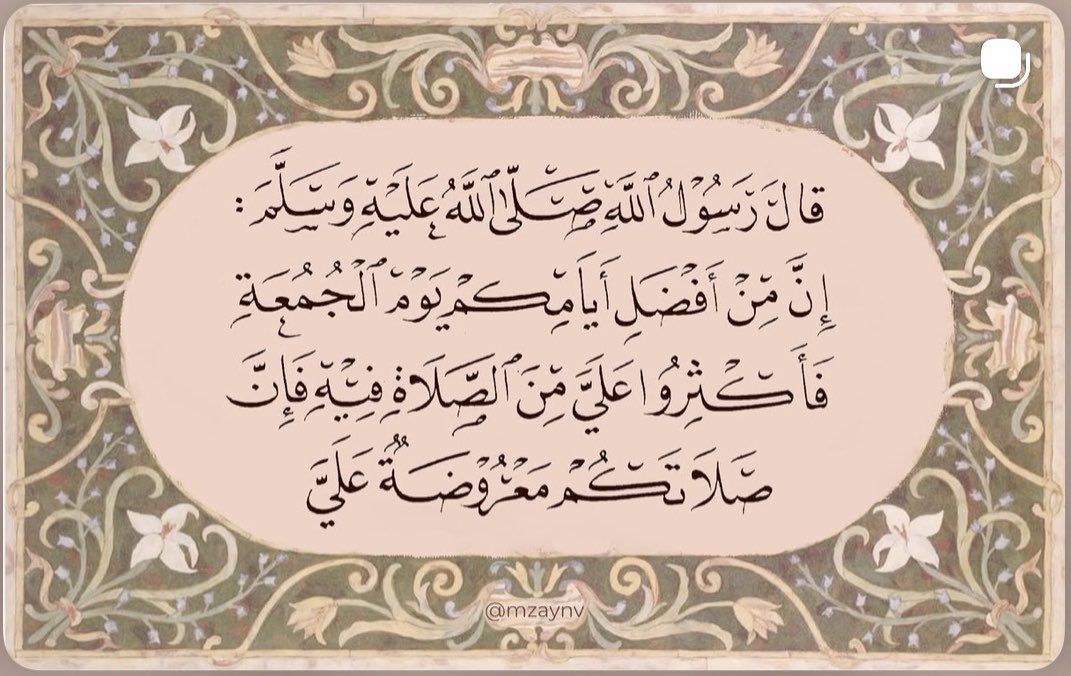 قَالَ رَسُوْلُ ٱللَّهِ صَلَّىٰ ٱللَّهُ عَلَيْهِ وَسَلَّمَ :
إِنَّ مِنْ أَفْضَلِ أَيَامِكُمْ يَوْمَ ٱلْجُمُعَةِ
فَأَكْثِرُوا عَلَيَّ مِنَ ٱلصَّلَاةِ فِيْهِ فَإِنَّ
صَلَاتَكُمْ مَعْرُوْضَةٌ عَلَيَّ
@mzaynv